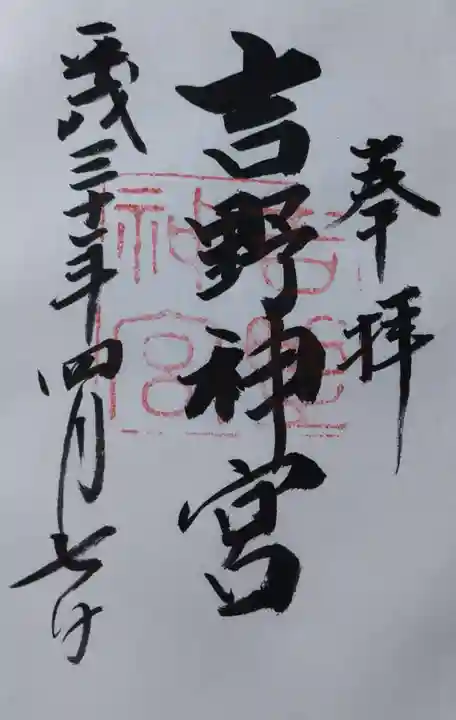 奉拝
吉野神宮
平成三十一年四月七日
吉野神宮